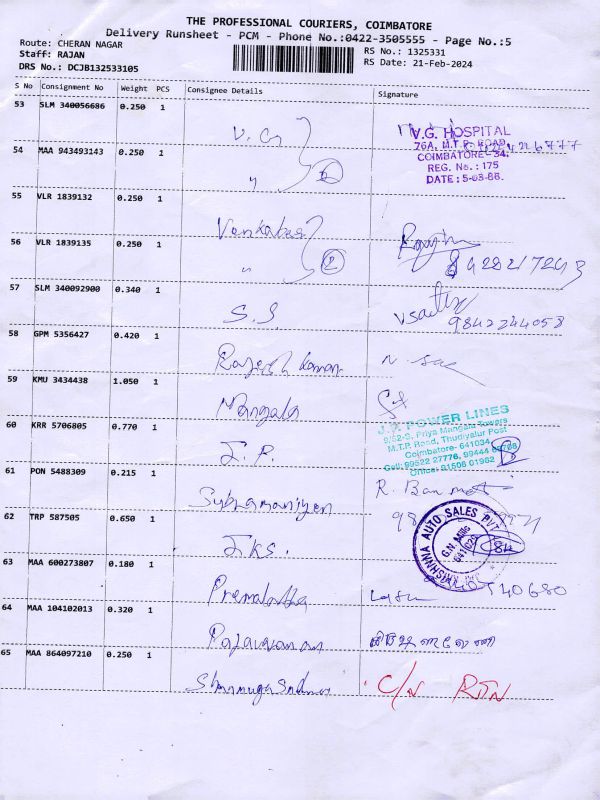 THE PROFESSIONAL COURIERS, COIMBATORE
Delivery Runsheet - PCM - Phone No.:0422-3505555 - Page No.:5
Route: CHERAN NAGAR
RS No.: 1325331
Staff: RAJAN
RS Date: 21-Feb-2024
DRS No.: DCJB132533105
S No Consignment No Weight PCS Consignee Details Signature
53 SLM 340056686 0.250 1
V. G
V.G. HOSPITAL
76A, M.T.P. ROAD,
COIMBATORE - 34.
REG. No.: 175
DATE : 5-03-88.
54 MAA 943493143 0.250 1
"
55 VLR 1839132 0.250 1
56 VLR 1839135 0.250 1
" 2
57 SLM 340092900 0.340 1
S. S.
9842244058
58 GPM 5356427 0.420 1
Rajesh Kumar
59 KMU 3434438 1.050 1
Mangala
60 KRR 5706805 0.770 1
J. P.
J.P. POWER LINES
9/52-C, Priya Mangalu Towers
M.T.P. Road, Thudiyalur Post
Coimbatore- 641034.
Cell: 99522 27776, 99444
Office: 91508 01962
61 PON 5488309 0.215 1
Subramaniyan
R. Banumati
62 TRP 587505 0.650 1
J.KS.
AUTO SALES PVT
G.N. Mills
641029
63 MAA 600273807 0.180 1
Premalatha
40680
64 MAA 104102013 0.320 1
65 MAA 864097210 0.250 1
C/N RTN